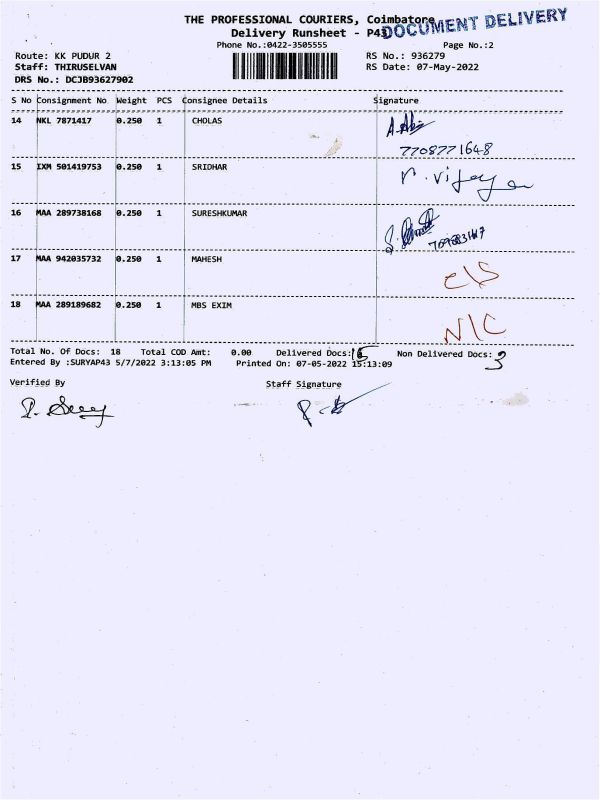 THE PROFESSIONAL COURIERS, Coimbatore
DOCUMENT DELIVERY
Delivery Runsheet - P43
Phone No.:0422-3505555 Page No.:2
Route: KK PUDUR 2 RS No.: 936279
Staff: THIRUSELVAN RS Date: 07-May-2022
DRS No.: DCJB93627902
S No Consignment No Weight PCS Consignee Details Signature
14 NKL 7871417 0.250 1 CHOLAS
7708771648
15 IXM 501419753 0.250 1 SRIDHAR
16 MAA 289738168 0.250 1 SURESHKUMAR
17 MAA 942035732 0.250 1 MAHESH
18 MAA 289189682 0.250 1 MBS EXIM
N/C
Total No. Of Docs: 18 Total COD Amt: 0.00 Delivered Docs: 15 Non Delivered Docs: 3
Entered By :SURYAP43 5/7/2022 3:13:05 PM Printed On: 07-05-2022 15:13:09
Verified By Staff Signature